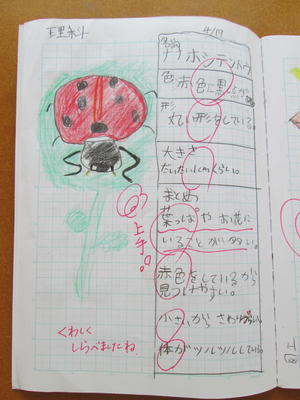 理科
4/19
名前
ホシテントウ
色 赤色に黒点が
形
丸い形をしている。
大きさ
だいたい1cmくらい。
まとめ
葉っぱやお花に
いることが多い。
赤色をしているから
見つけやすい。
小さいから さわりづらい。
体がツルツルしている。
上手。
くわしく
しらべましたね